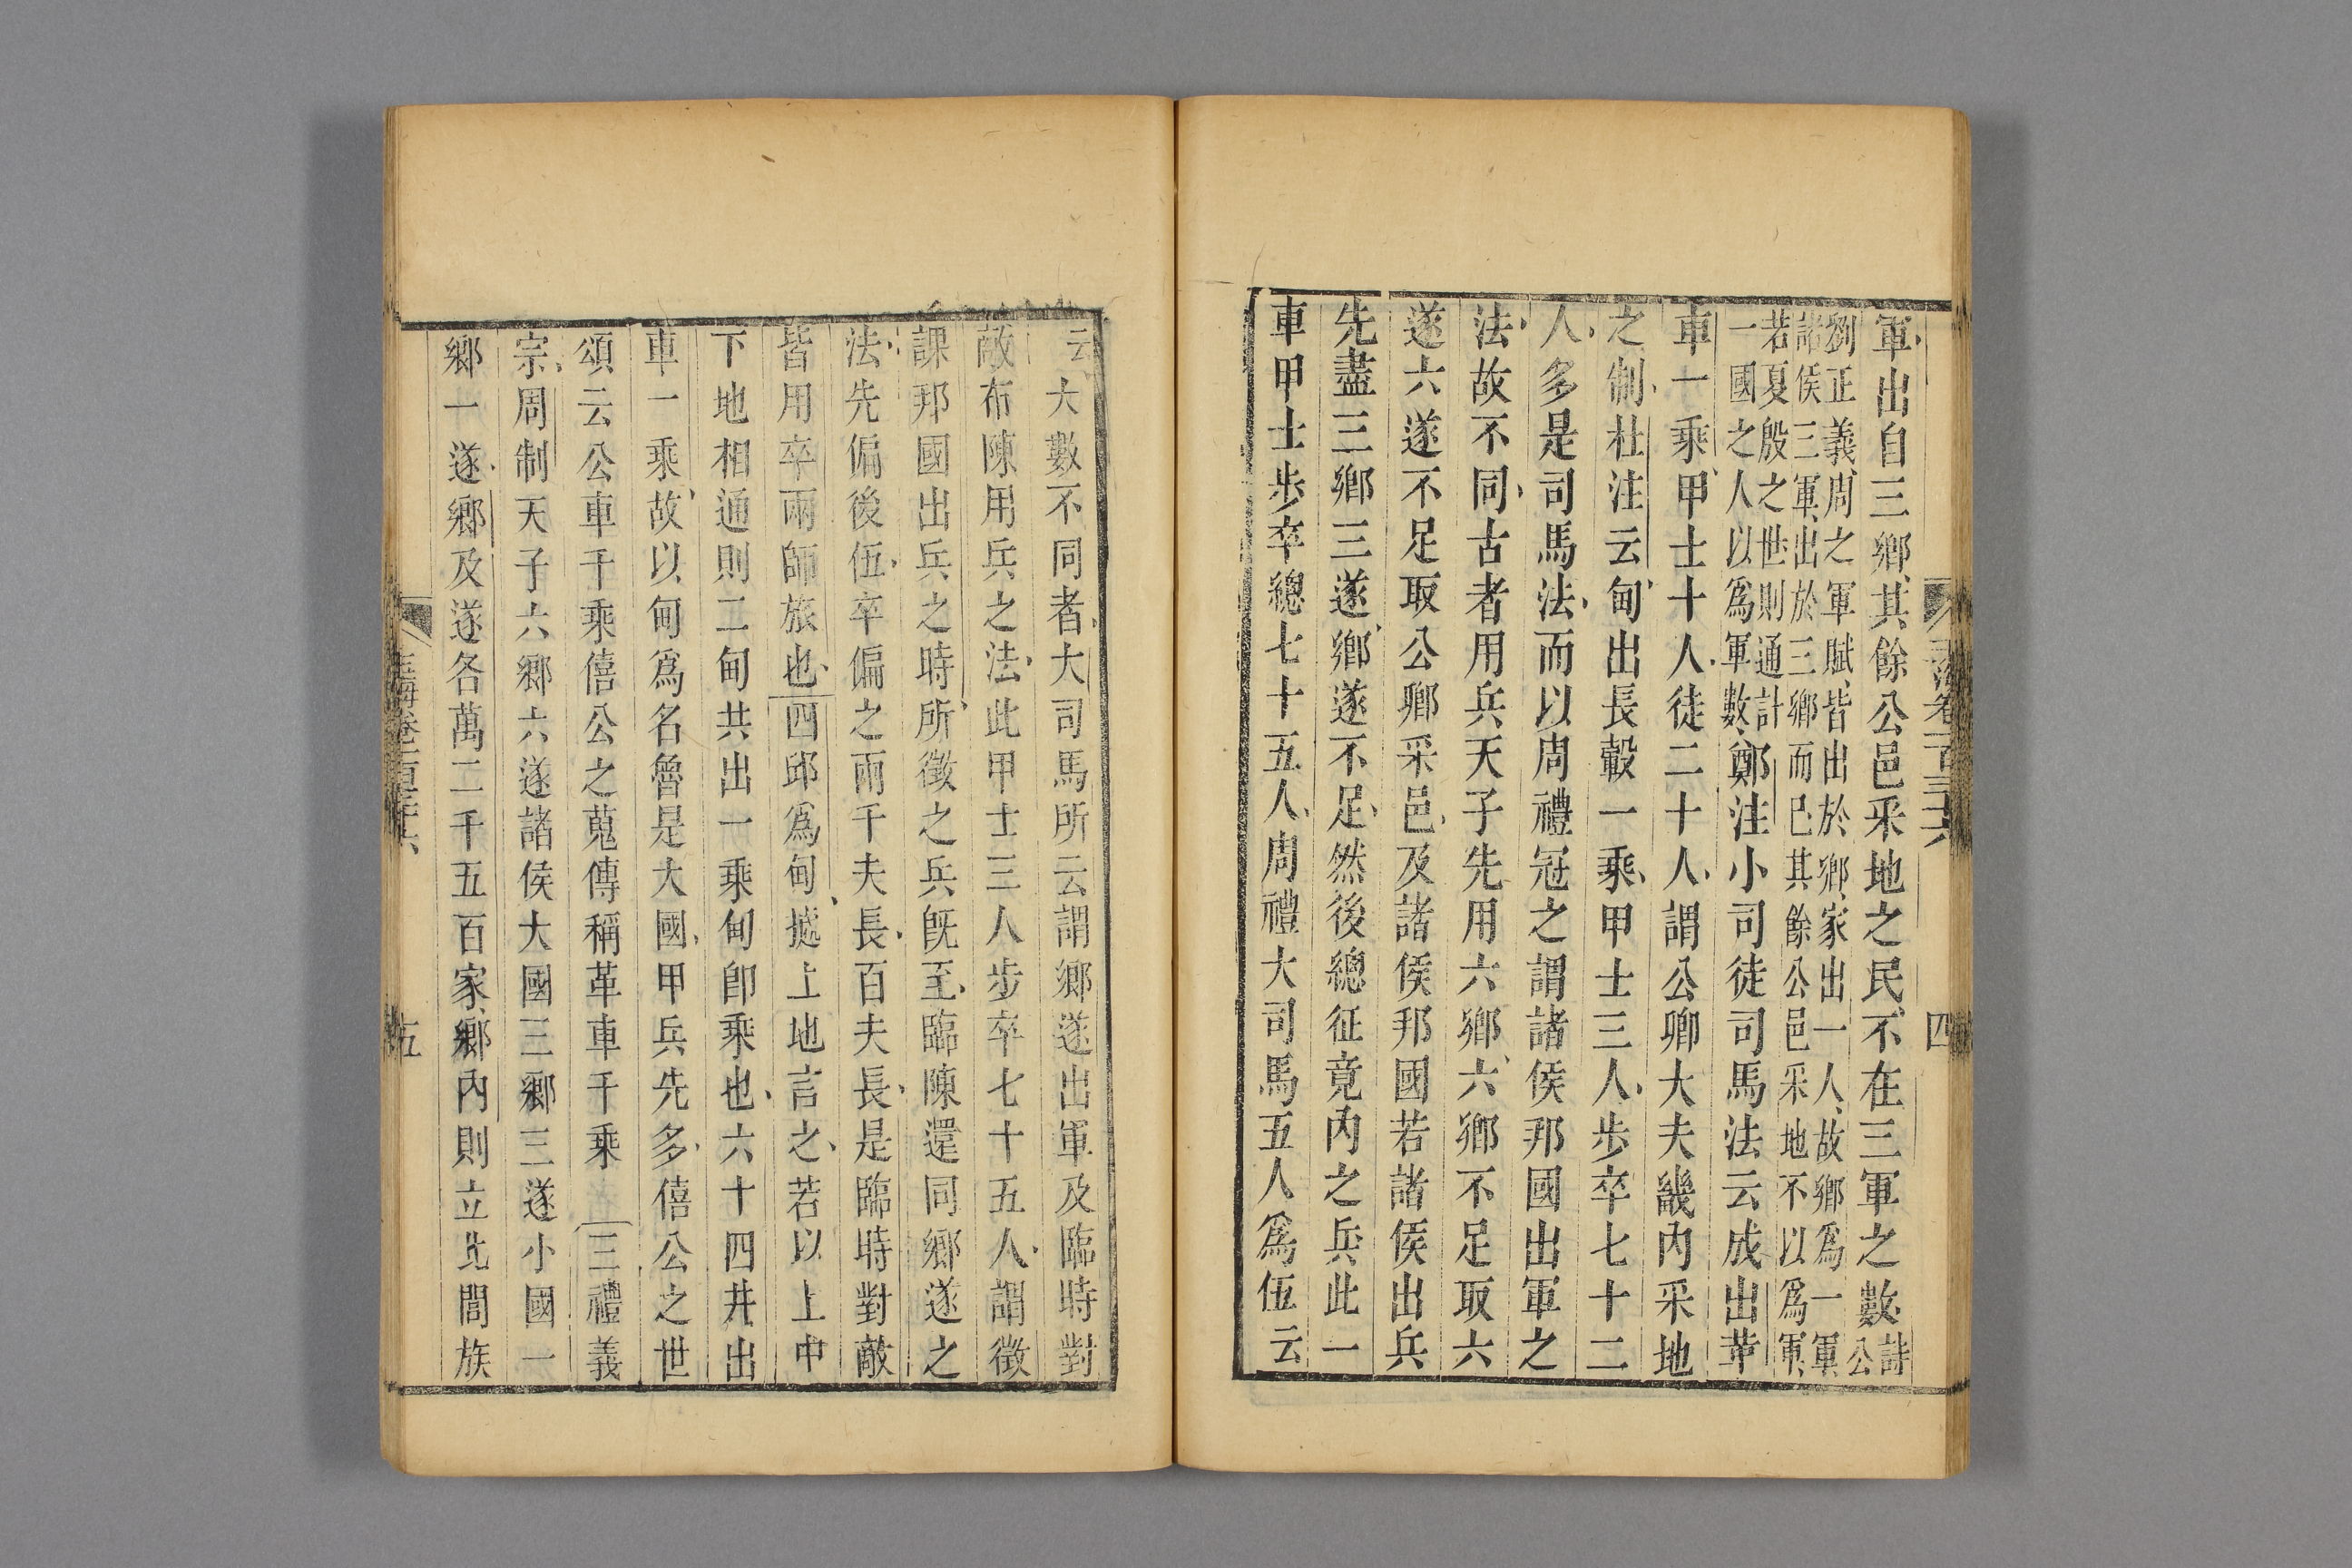 軍出自三鄉其餘公邑采地之民不在三軍之數詩公
劉正義周之軍賦皆出於鄉家出一人故鄉為一軍
諸侯三軍出於三鄉而已其餘公邑采地不以為軍
若夏殷之世則通計
一國之人以為軍數鄭注小司徒司馬法云成出革
車一乘甲士十人徒二十人謂公卿大夫畿內采地
之制杜注云甸出長轂一乘甲士三人步卒七十二
人多是司馬法而以周禮冠之謂諸侯邦國出軍之
法故不同古者用兵天子先用六鄉六鄉不足取六
遂六遂不足取公卿采邑及諸侯邦國若諸侯出兵
先盡三鄉三遂鄉遂不足然後總征竟內之兵此一
車甲士步卒總七十五人周禮大司馬五人為伍云
玉海卷一百三十六
四
云大數不同者大司馬所云謂鄉遂出軍及臨時對
敵布陳用兵之法此甲士三人步卒七十五人謂徵
課邦國出兵之時所徵之兵既至臨陳還同鄉遂之
法先偏後伍卒偏之兩千夫長百夫長是臨時對敵
皆用卒兩師旅也四邱為甸據上地言之若以上中
下地相通則二甸共出一乘甸即乘也六十四井出
車一乘故以甸為名魯是大國甲兵先多僖公之世
頌云公車千乘僖公之蒐傳稱革車千乘三禮義
宗周制天子六鄉六遂諸侯大國三鄉三遂小國一
鄉一遂鄉及遂各萬二千五百家鄉內則立比閭族
玉海卷一百三十六
五